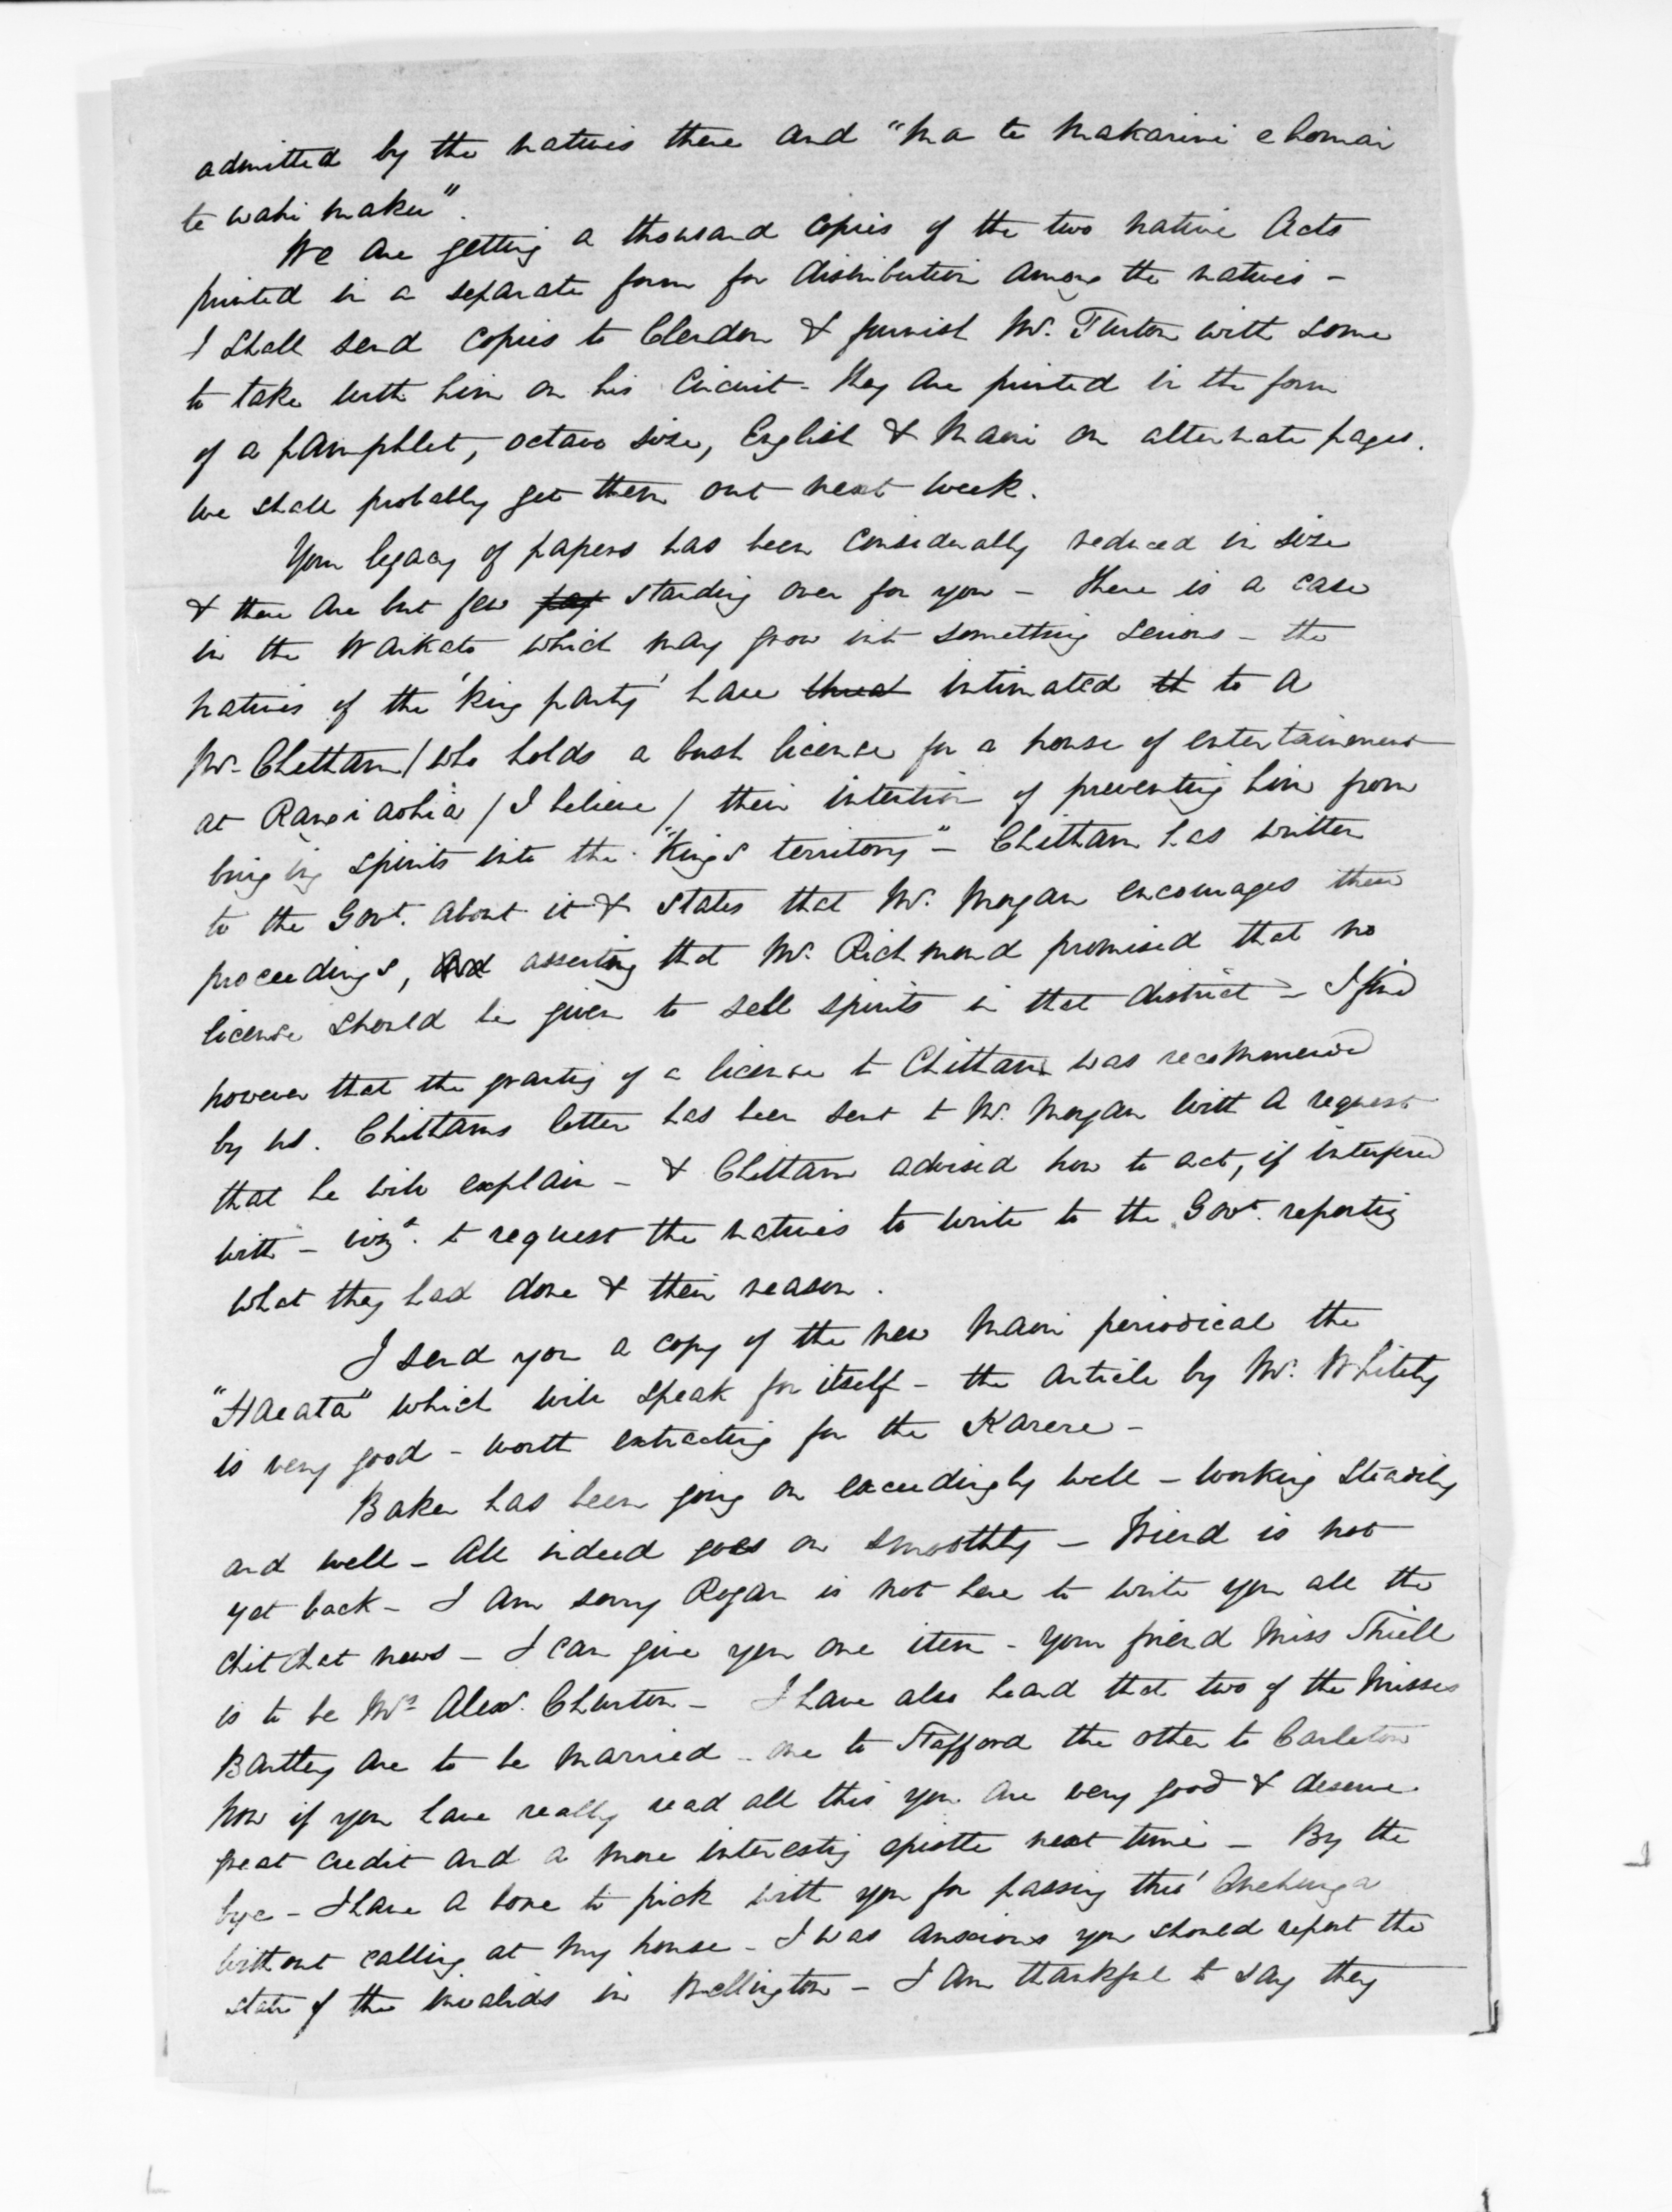 admitted by the natives there and "Ma te Makarini e homai
te wahi maku".
We are getting a thousand copies of the two native Acts
printed in a separate form for distribution among the natives -
I shall send copies to Clendon & furnish Mr. Turton with some
to take with him on his Circuit - they are printed in the form
of a pamphlet, octavo size, English & Maori on alternate pages.
We shall probably get them out next week.
Your legacy of papers has been considerably reduced in size
& there are but few standing over for you - There is a case
in the Waikato which may grow into something serious - the
natives of the 'King party' have intimated to a
Mr. Chittam / who holds a bush license for a house of entertainment
at Rangiaohia / I believe / their intention of preventing him from
bringing spirits into the "Kings territory" - Chittam has written
to the Govt. about it & states that Mr. Morgan encourages their
proceedings, asserting that Mr. Richmond promised that no
license should be given to sell spirits in that district - I find
however that the granting of a license to Chittam was recommend
by us. Chittams letter has been sent to Mr. Morgan with a request
that he will explain - & Chittam advised how to act, if interfered
with - vizt. to request the natives to write to the Govt. reporting
what they had done & their reason.
I send you a copy of the new Maori periodical the
"Haeata" which will speak for itself - the article by Mr. Whitely
is very good - worth extracting for the Karere -
Baker has been going on exceedingly well - working steadily
and well - All indeed goes on smoothly - Friend is not
yet back - I am sorry Rogan is not here to write you all the
chit chat news - I can give you one item - your friend Miss
is to be Mrs Alexr. Churton - I have also heard that two of the Misses
Bartley are to be married - one to Stafford the other to Carleton
Now if you have really read all this you are very good & deserve
great credit and a more interesting epistle next time - By the
bye - I have a bone to pick with you for passing thro' Onehunga
without calling at my house - I was anxious you should report the
state of the invalids in Wellington - I am thankful to say they